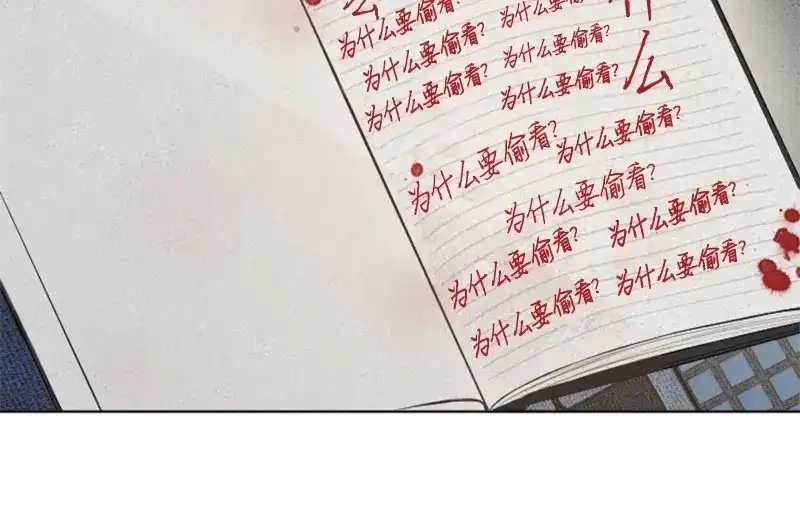 么
为什么要偷看?
为什么要偷看?
为什么要偷看?
为什么要偷看?
为什么要偷看?
为什么要偷看?
什
么
为什么要偷看?
为什么要偷看?
为什么要偷看?
为什么要偷看?
为什么要偷看?
为什么要偷看?
为什么要偷看?
为什么要偷看?